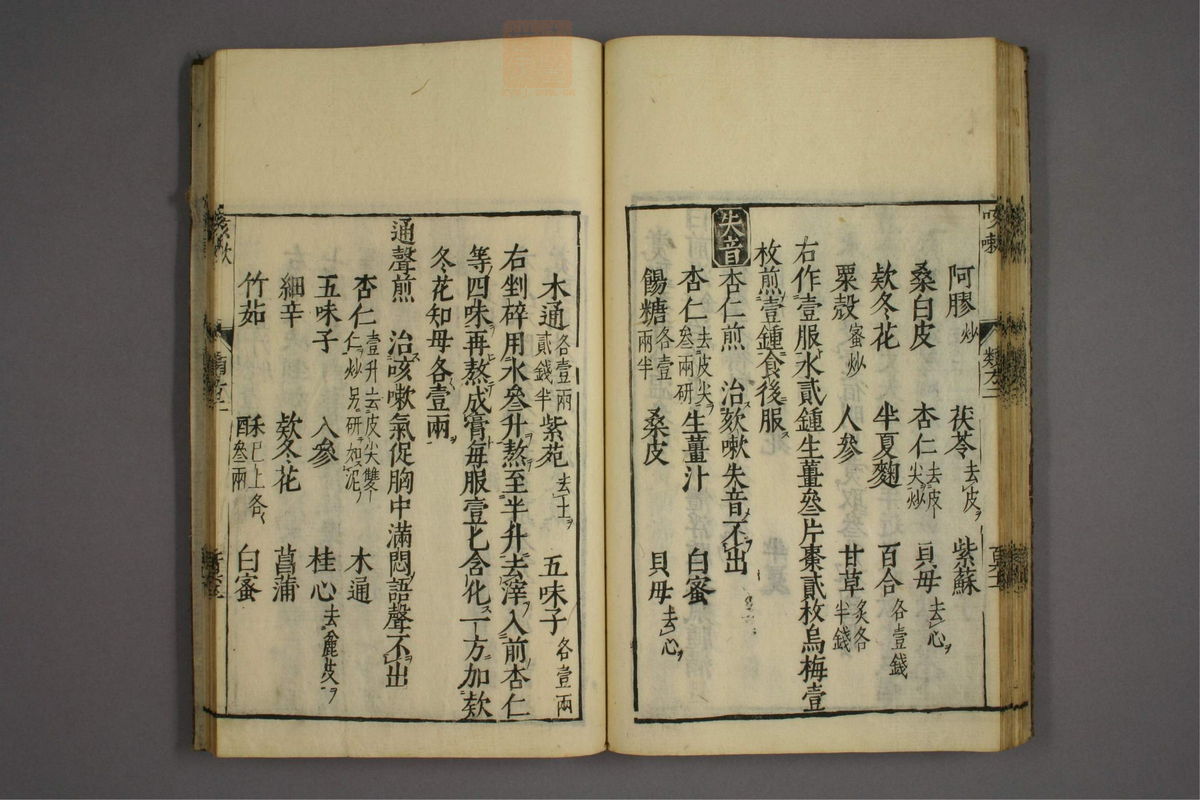 阿膠炒 茯苓去皮 紫蘇
桑白皮 杏仁去皮尖炒 貝母去心
欵冬花 半夏麯 百合各壹錢
粟殼蜜炒 人參 甘草炙各半錢
右作壹服水貳鍾生薑叄片棗貳枚烏梅壹
枚煎壹鍾食後服
失音 杏仁煎 治欬嗽失音不出
杏仁去皮尖叄兩研 生薑汁 白蜜
餳糖各壹兩半 桑皮 貝母去心
木通各壹兩貳錢半 紫菀去土 五味子各壹兩
右剉碎用水叄升熬至半升去滓入前杏仁
等四味再熬成膏每服壹匕含化一方加欵
冬花知母各壹兩
通聲煎 治咳嗽氣促胸中滿悶語聲不出
杏仁壹升去皮尖雙仁炒另研如泥 木通
五味子 人參 桂心去麄皮
細辛 欵冬花 菖蒲
竹茹 酥已上各叄兩 白蜜